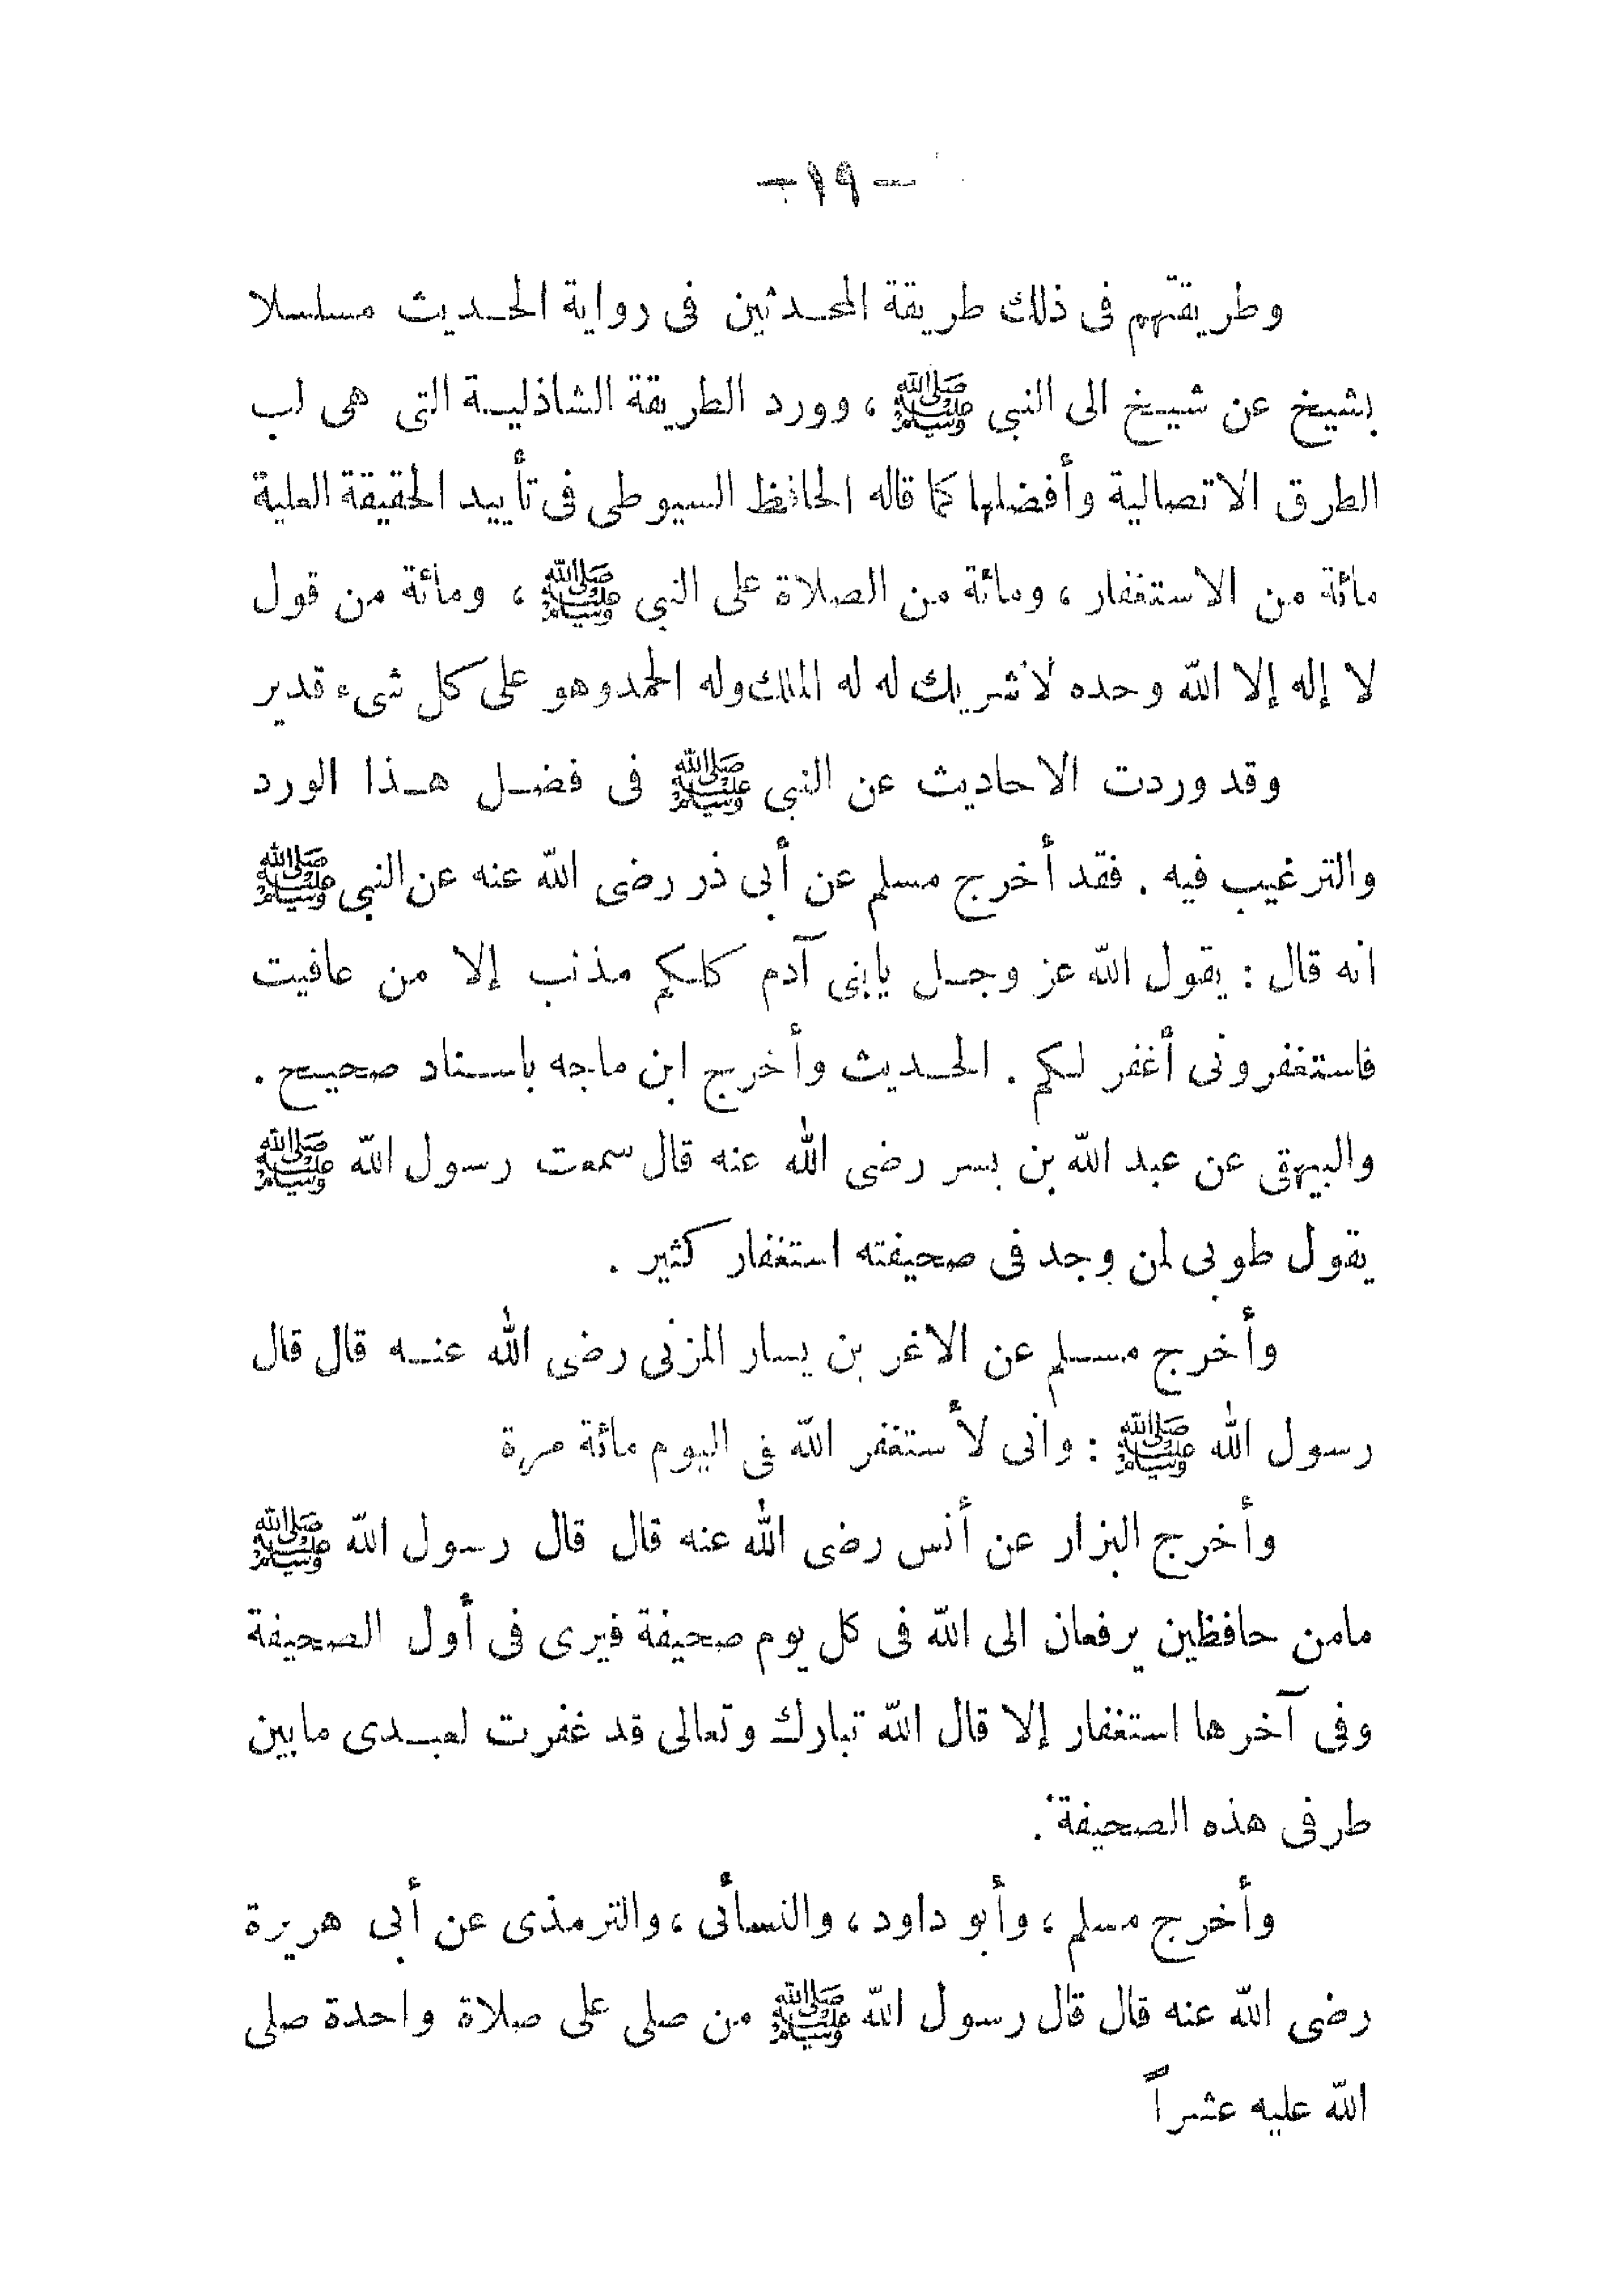 — ١٩ —
وطريقتهم فى ذلك طريقة المحدثين فى رواية الحديث مسلسلا
بشيخ عن شيخ الى النبى ﷺ ، وورد الطريقة الشاذلية التى هى لب
الطرق الاتصالية وأفضلها كما قاله الحافظ السيوطى فى تأييد الحقيقة العلية
مائة من الاستغفار ، ومائة من الصلاة على النبى ﷺ ، ومائة من قول
لا إله إلا الله وحده لاشريك له له الملك وله الحمد وهو على كل شىء قدير
وقد وردت الاحاديث عن النبى ﷺ فى فضل هذا الورد
والترغيب فيه . فقد أخرج مسلم عن أبى ذر رضى الله عنه عن النبى ﷺ
انه قال : يقول الله عز وجل يابنى آدم كلكم مذنب إلا من عافيت
فاستغفرونى أغفر لكم . الحديث وأخرج ابن ماجه باسناد صحيح .
والبيهقى عن عبد الله بن بسر رضى الله عنه قال سمعت رسول الله ﷺ
يقول طوبى لمن وجد فى صحيفته استغفار كثير .
وأخرج مسلم عن الاغر بن يسار المزنى رضى الله عنه قال قال
رسول الله ﷺ : وانى لأستغفر الله فى اليوم مائة مرة
وأخرج البزار عن أنس رضى الله عنه قال قال رسول الله ﷺ
مامن حافظين يرفعان الى الله فى كل يوم صحيفة فيرى فى أول الصحيفة
وفى آخرها استغفار إلا قال الله تبارك وتعالى قد غفرت لعبدى مابين
طرفى هذه الصحيفة .
وأخرج مسلم ، وأبو داود ، والنسأئى ، والترمذى عن أبى هريرة
رضى الله عنه قال قال رسول الله ﷺ من صلى على صلاة واحدة صلى
الله عليه عشراً